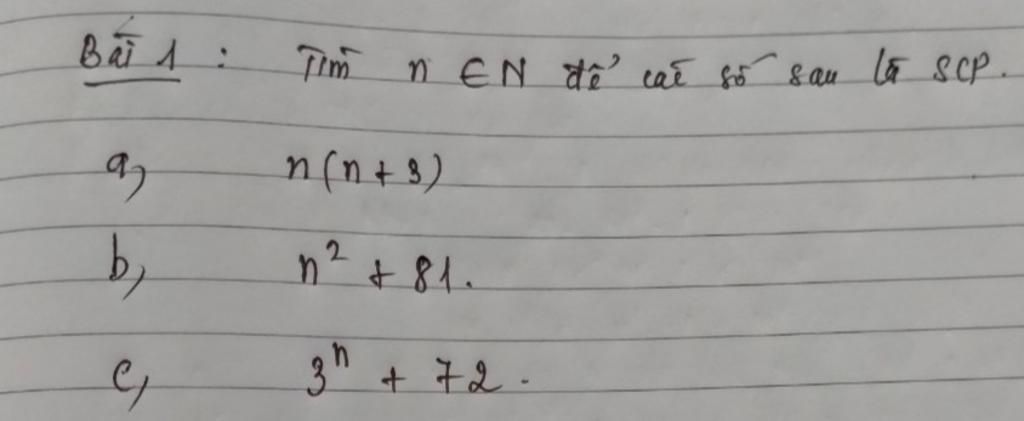 Bài 1 : Tìm n ∈ N để các số sau là SCP.
a, n(n + 3)
b, n² + 81.
c, 3ⁿ + 72.